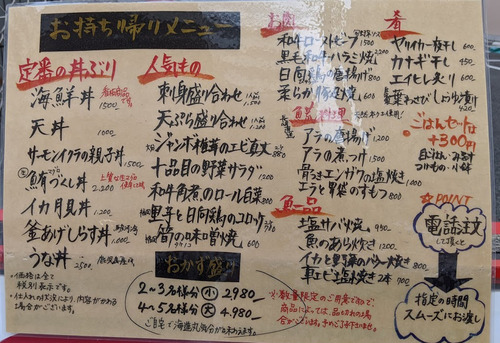 お持ち帰りメニュー
定番の丼ぶり
海鮮丼 1500
天丼 1000
サーモンイクラの親子丼 1500
鮪づくし丼 2.200
イカ月見丼 1.200
釜あげしらす丼
うな丼 2500
・価格は全て
税別表示です。
・仕入れの状況により内容がかわる
場合がございます。
人気もの
刺身盛り合わせ
天ぷら盛り合わせ
ジャンボ椎茸のエビ真丈
十品目の野菜サラダ
和牛角煮のロール白菜 800
黒牛と日向鶏のコロッケ
筍の味噌焼 600
おかず盛り
2~3名様分 小 2980
4~5名様分 大 4.980
お肉
和牛ローストビーフ 1500
黒毛和牛ハラミ焼 1200
日向鶏の唐揚げ 800
柔らか豚塩焼 600
アラの唐揚げ 1200
アラの煮つけ 1500
骨うまエンガワの塩焼き 1000
エラと胃袋のすもつ 800
魚一品
塩サバ焼 950
魚のあら炊き 1200
イカと野菜のバター焼 1800
車エビ塩焼き 2本 900
※数量限定のご用意なので、
商品によっては、品切れの場
合がございます。予めご了承下さいませ。
肴
ヤリイカ一夜干し 600
カナギ干し 450
エイヒレ炙り 600
葉わさびしょうゆ漬け 420
ごはんセットは
+300円
白ごはん・みそ汁
つけもの・小鉢
☆POINT
電話注文
して頂くと
指定の時間
スムーズにお渡し